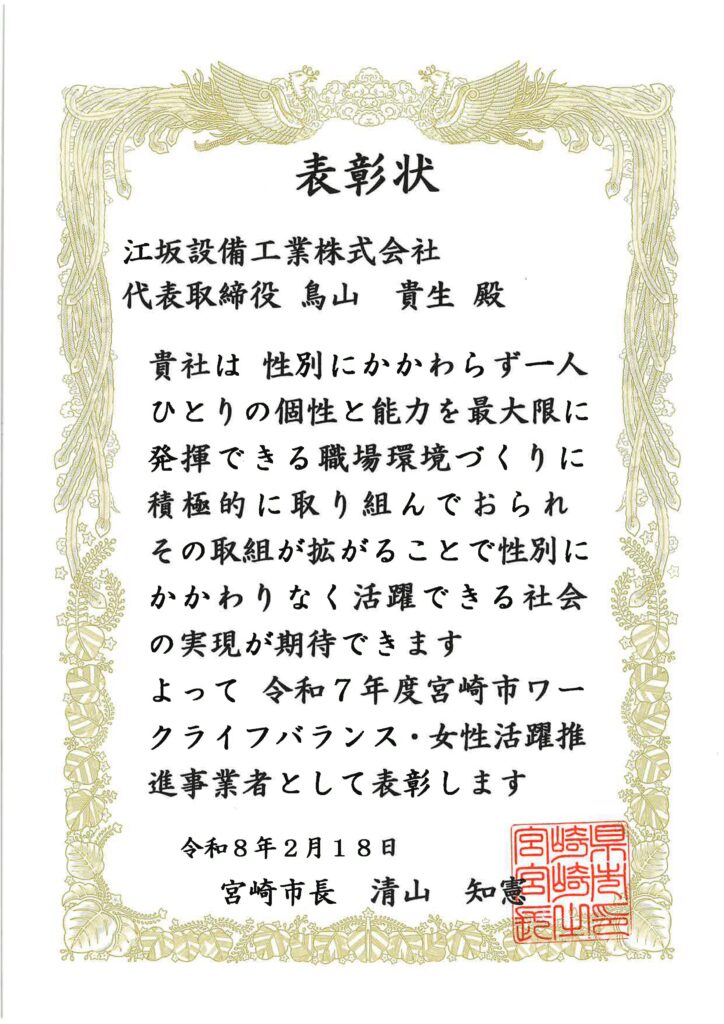 表彰状
江坂設備工業株式会社
代表取締役 鳥山　貴生 殿
貴社は 性別にかかわらず一人
ひとりの個性と能力を最大限に
発揮できる職場環境づくりに
積極的に取り組んでおられ
その取組が拡がることで性別に
かかわりなく活躍できる社会
の実現が期待できます
よって 令和７年度宮崎市ワー
クライフバランス・女性活躍推
進事業者として表彰します
令和８年２月１８日
宮崎市長　清山　知憲
宮崎県宮崎市長之印